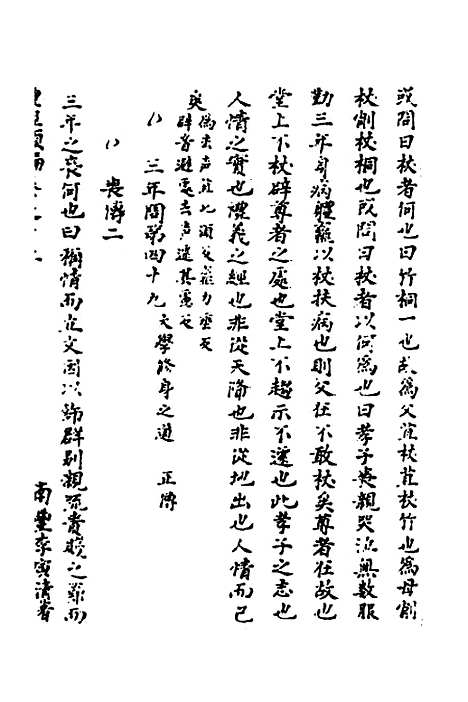 或問曰杖者何也曰竹桐一也故為父苴杖苴杖竹也為母削
杖削杖桐也或問曰杖者以何為也曰孝子喪親哭泣無數服
勤三年身病體羸以杖扶病也則父在不敢杖矣尊者在故也
堂上不杖辟尊者之處也堂上不趨示不遽也此孝子之志也
人情之實也禮義之經也非從天降也非從地出也人情而已
矣
為去声苴七須反羸力垂反
辟音避處去声遽其慮反
三年問第四十九
大學修身之道 正傳
喪傳二
三年之喪何也曰稱情而立文因以飾群別親疏貴賤之節而
南豐李寅清眷